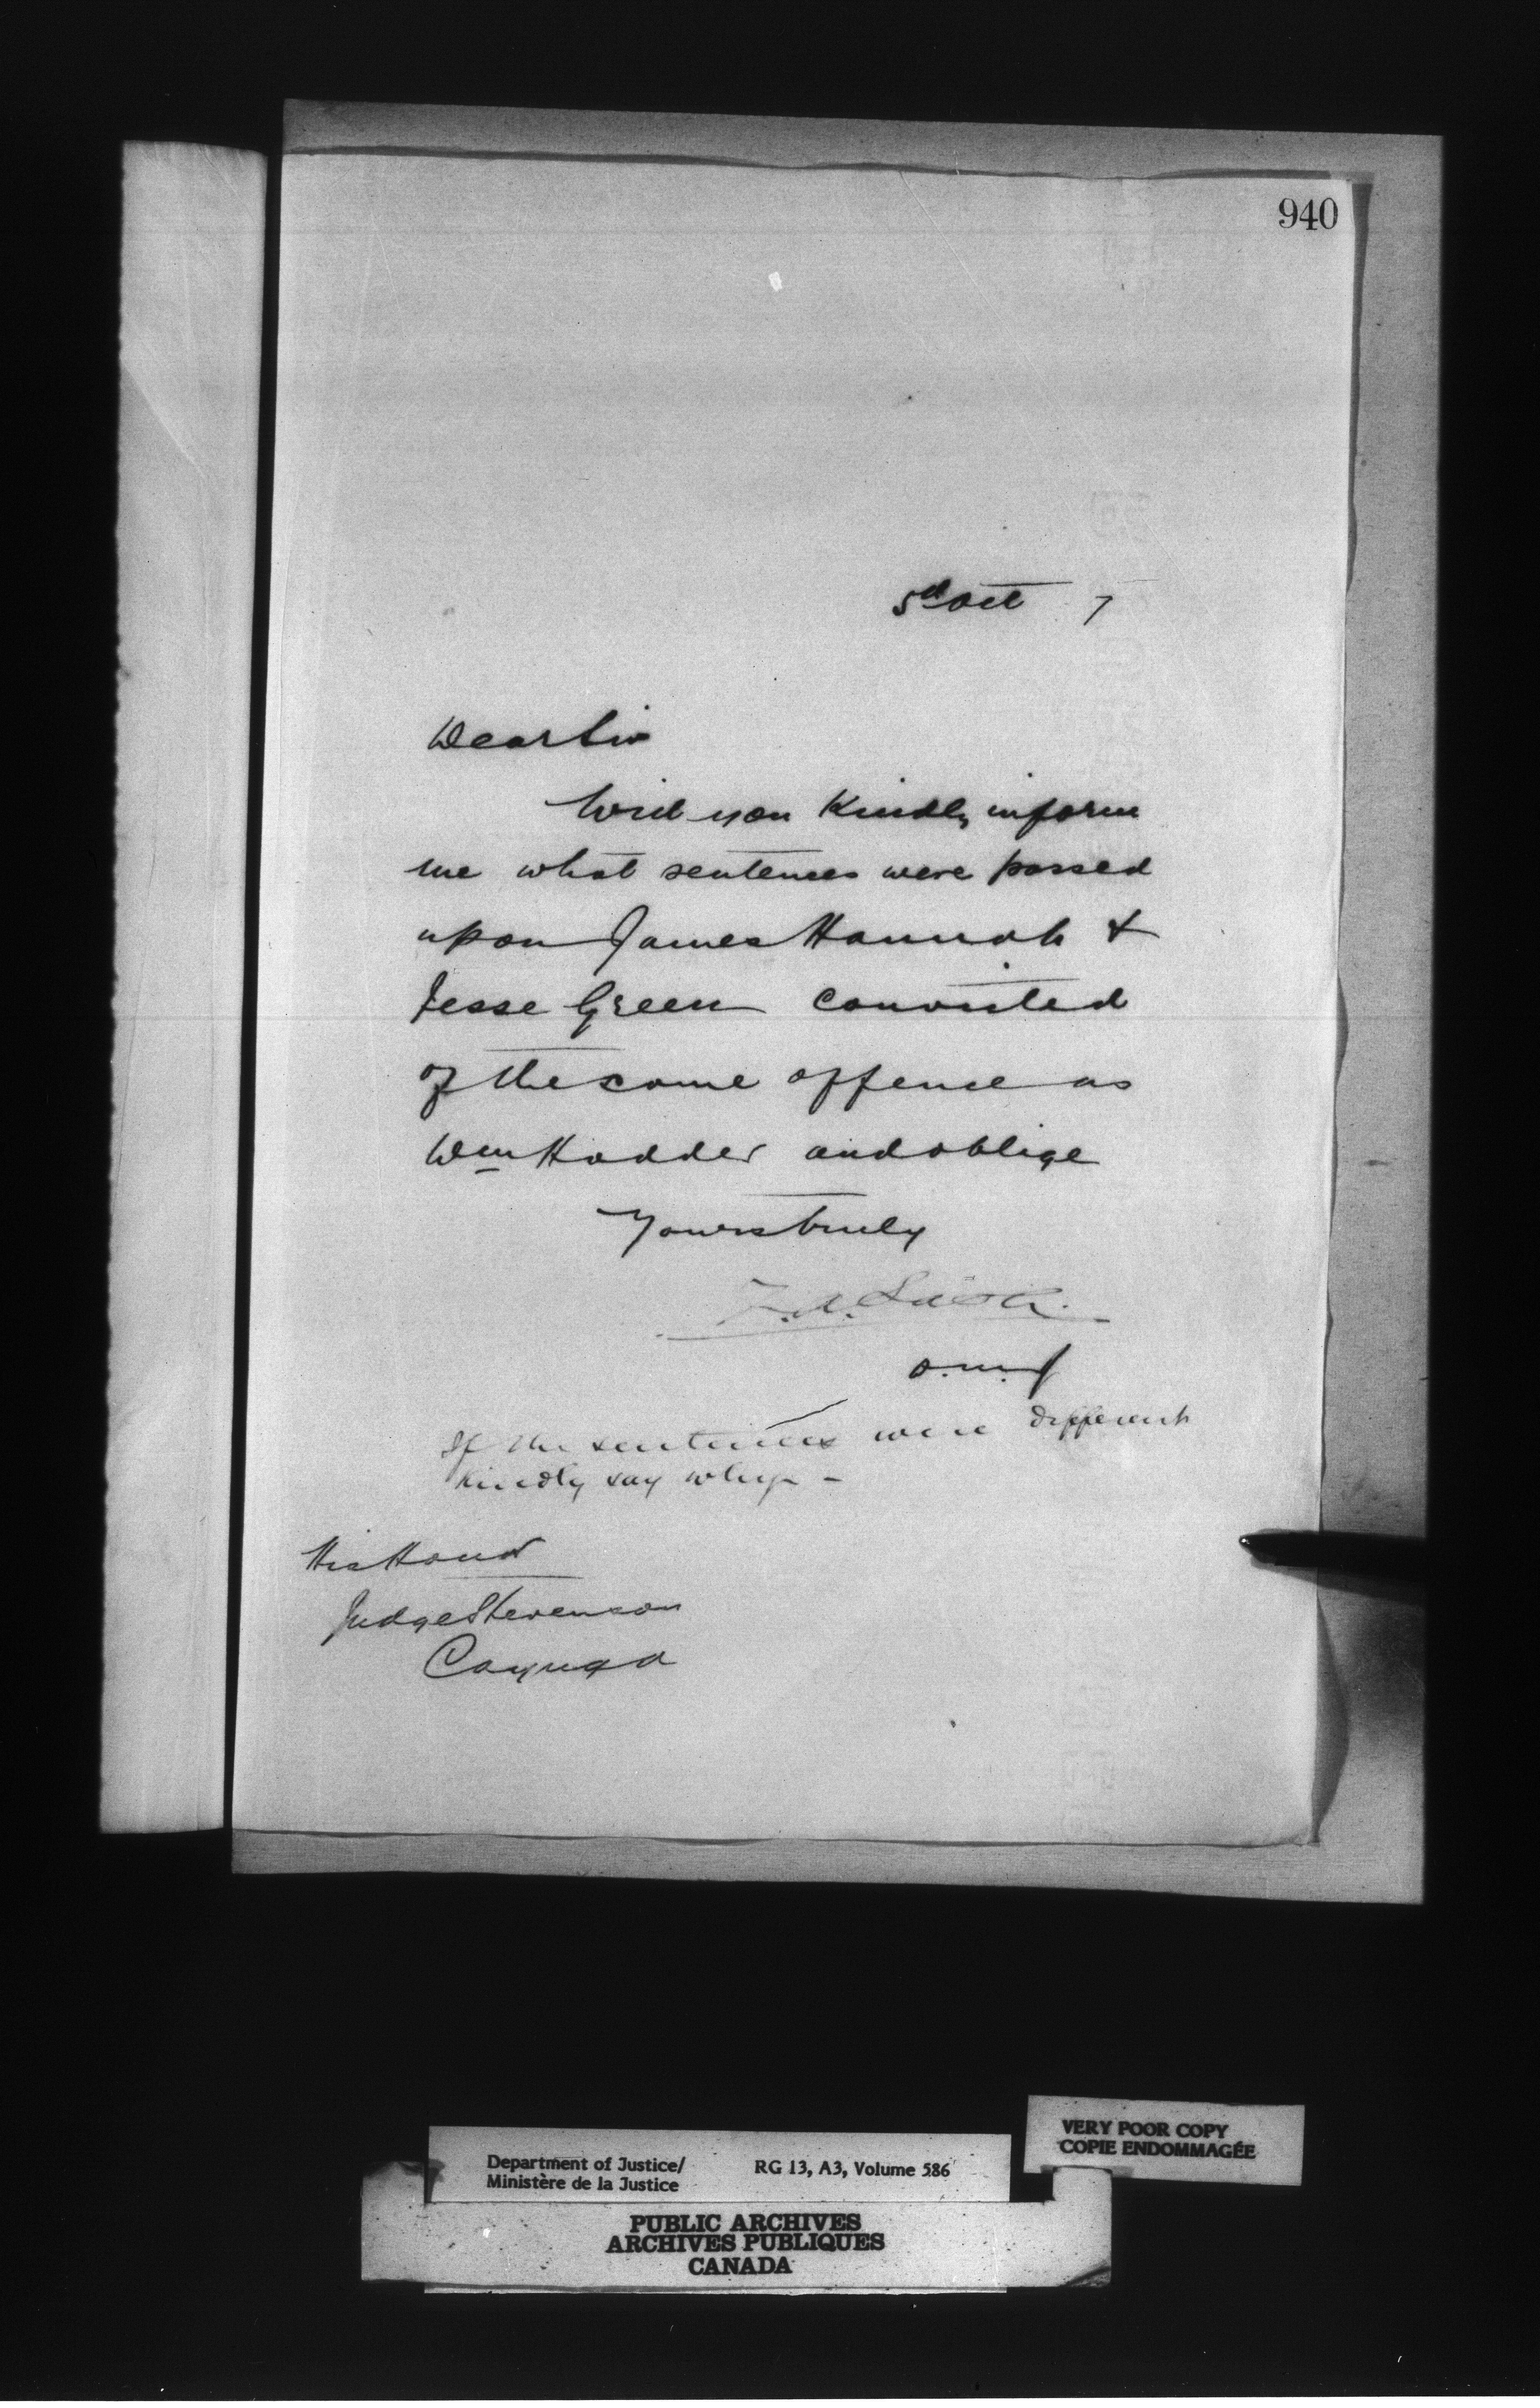 940
5th Oct 7
Dear Sir
Will you Kindly inform
me what sentences were passed
upon James Hannah &
Jesse Green convicted
of the same offence as
Wm Hodder and oblige
Yours truly
Z.A. Lash
D.M.J
If the sentences were different
kindly say why -
His Honor
Judge Stevenson
Cayuga
VERY POOR COPY
COPIE ENDOMMAGÉE
Department of Justice/ RG 13, A3, Volume 586
Ministère de la Justice
PUBLIC ARCHIVES
ARCHIVES PUBLIQUES
CANADA